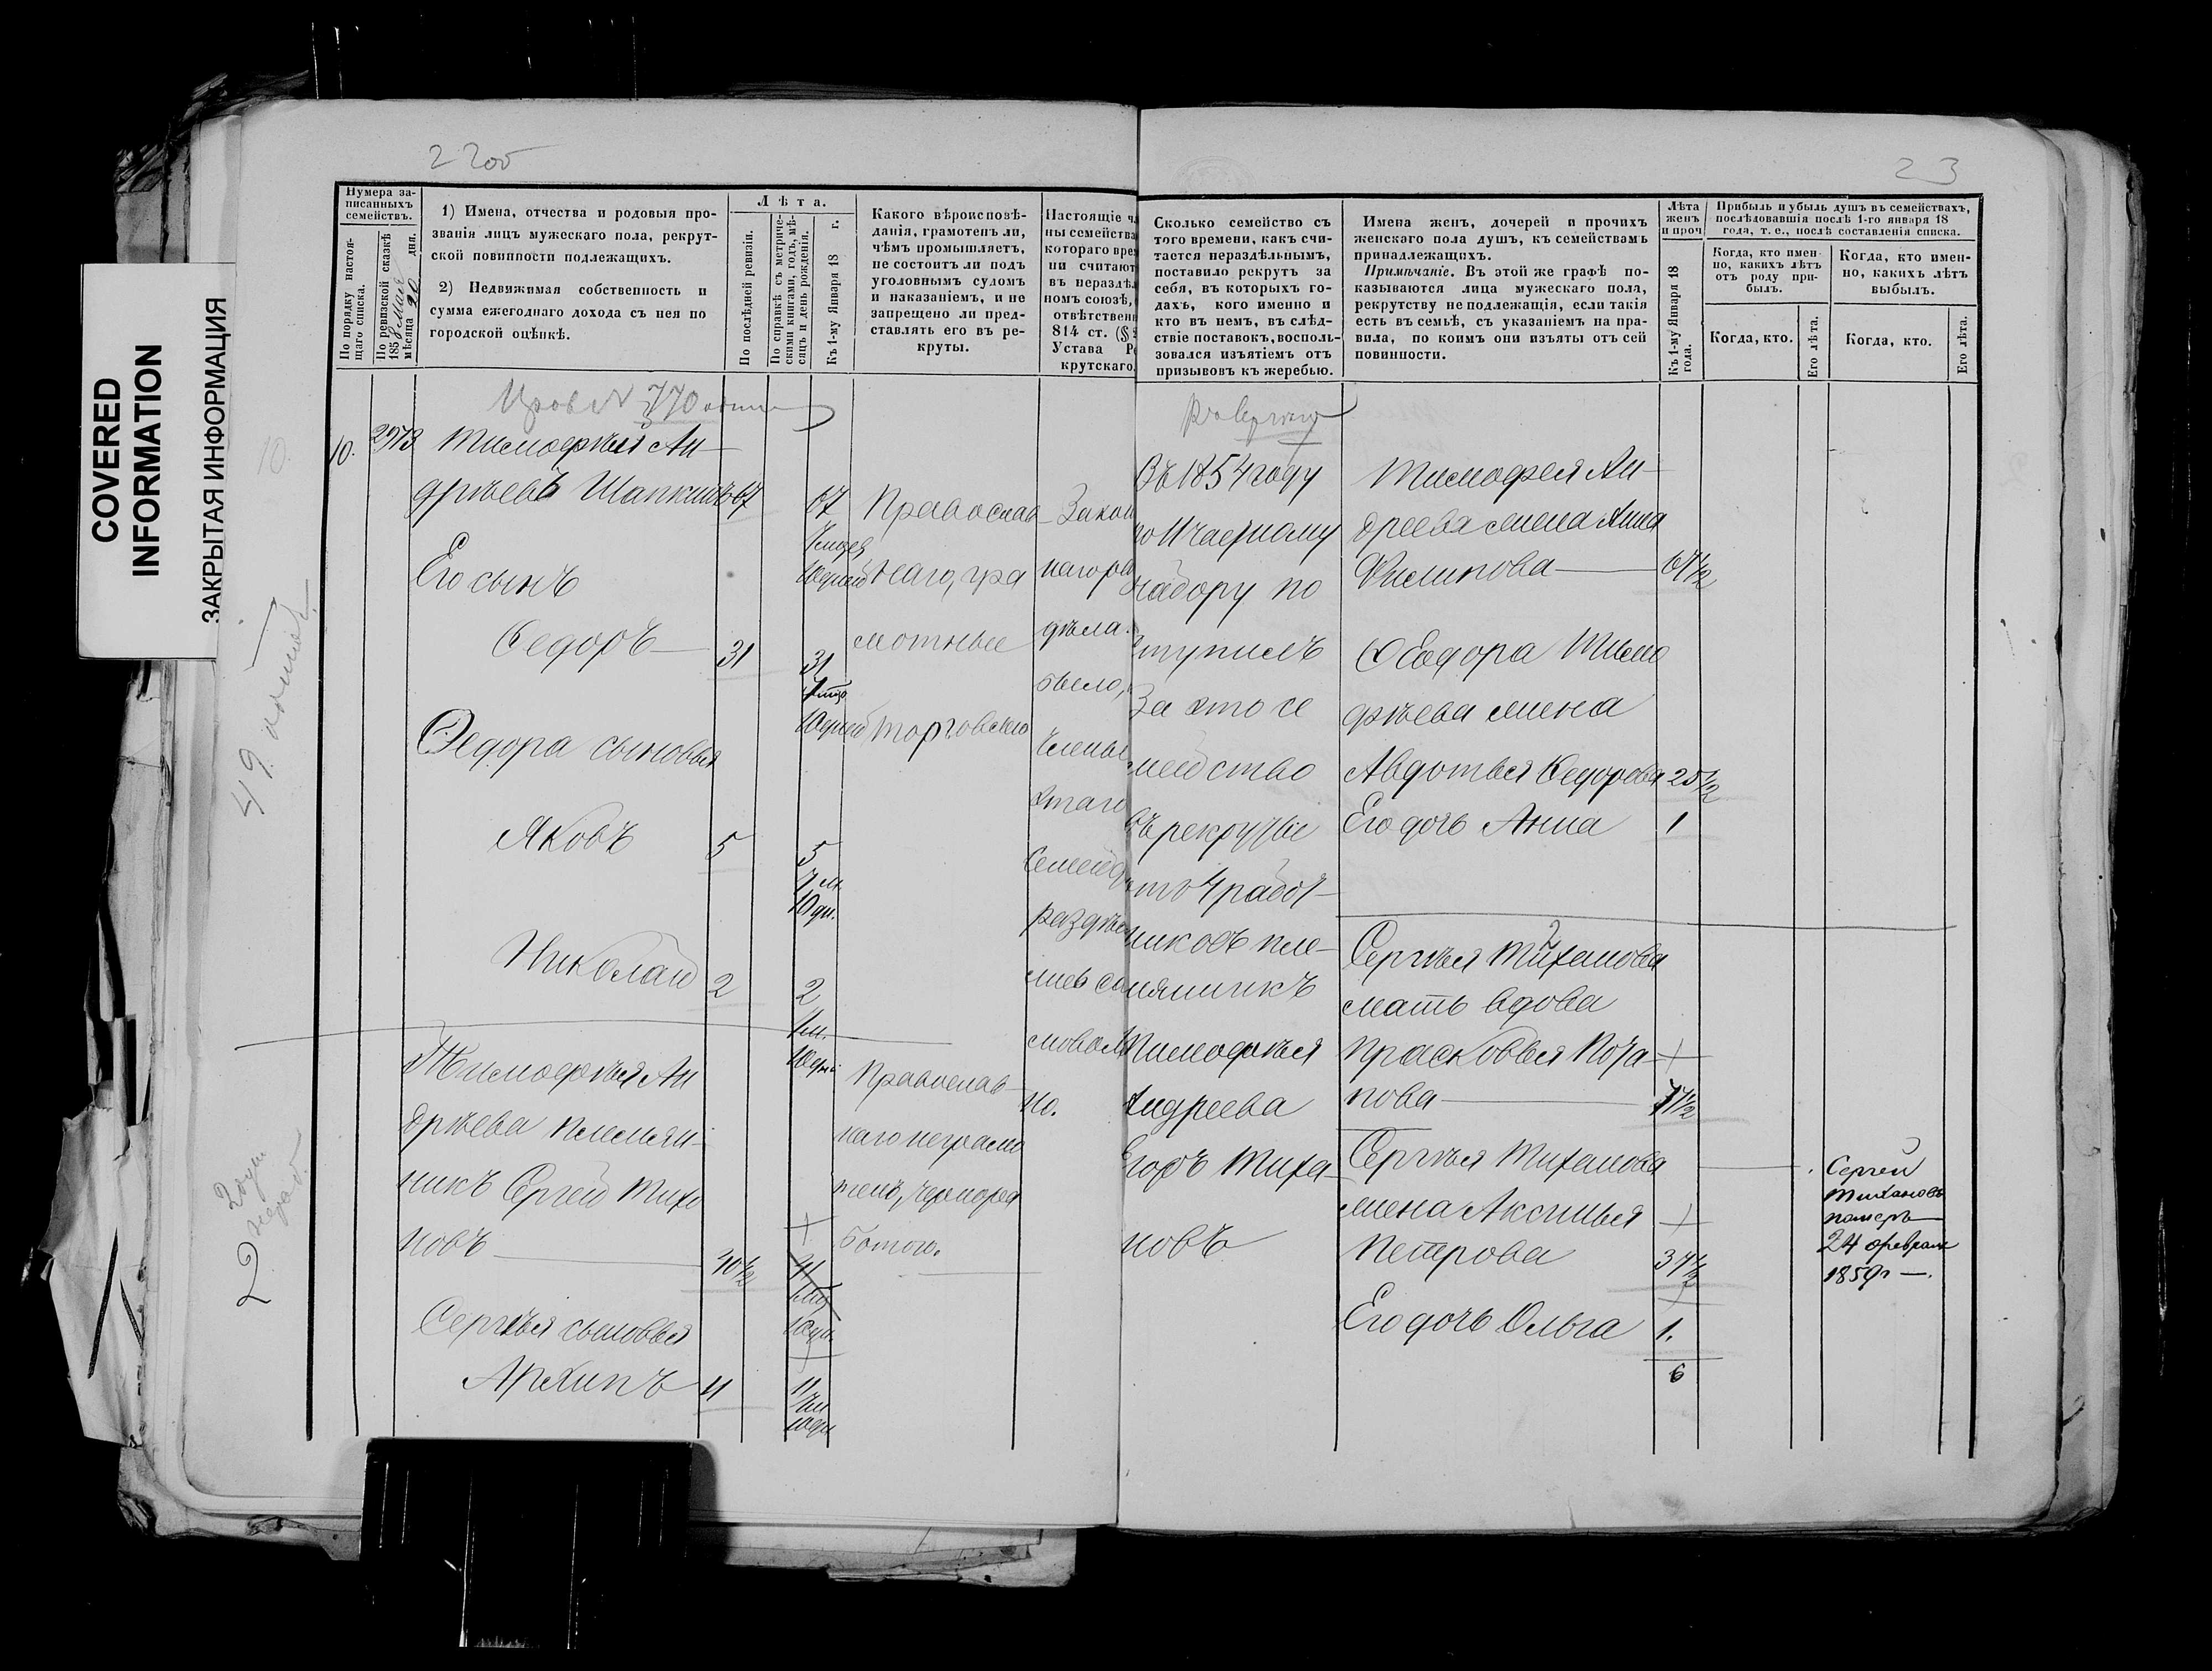 COVERED
INFORMATION
ЗАКРЫТАЯ ИНФОРМАЦИЯ
22об
Нумера за-
писанныхъ
семействъ.
По порядку настоя-
щаго списка.
По ревизской сказкѣ
1858 Мая
мѣсяца 20 дня.
1) Имена, отчества и родовыя про-
званія лицъ мужескаго пола, рекрут-
ской повинности подлежащихъ.
2) Недвижимая собственность и
сумма ежегоднаго дохода съ нея по
городской оцѣнкѣ.
Лѣта.
По послѣдней ревизіи.
По справкѣ съ метриче-
скими книгами, годъ, мѣ-
сяцъ и день рожденія.
Къ 1-му Января 18 г.
Какого вѣроисповѣ-
данія, грамотенъ ли,
чѣмъ промышляетъ,
не состоитъ ли подъ
уголовнымъ судомъ
и наказаніемъ, и не
запрещено ли пред-
ставлять его въ ре-
круты.
Настоящіе ч
ны семейства
котораго вре
ни считают
въ нераздѣл
номъ союзѣ,
отвѣтствен
814 ст. (§
Устава Р
крутскаго.
10.
49
10.
Тимофѣй Ан-
дрѣевъ Шапкинъ 67
67
Его сынъ
Федоръ 31
31
Федора сыновья
Яковъ 5
5
7 м.
10 дн.
Николай 2
2
Тимофѣя Ан
дрѣева племян-
никъ Сергей Тихо
новъ 40½
Сергѣя сыновья
Архипъ 11
11
Православ-
наго, гра
мотные
торговлею
Православ-
наго неграмо
тенъ, чернораб
ботою.
Закон
наго ра
дѣла.
было,
члены
этаго
семейст
раздѣ
но.
23
Сколько семейство съ
того времени, какъ счи-
тается нераздѣльнымъ,
поставило рекрутъ за
себя, въ которыхъ го-
дахъ, кого именно и
кто въ немъ, въ слѣд-
ствіе поставокъ, восполь-
зовался изъятіемъ отъ
призывовъ къ жеребью.
Имена женъ, дочерей и прочихъ
женскаго пола душъ, къ семействамъ
принадлежащихъ.
Примѣчаніе. Въ этой же графѣ по-
казываются лица мужескаго пола,
рекрутству не подлежащія, если такія
есть въ семьѣ, съ указаніемъ на пра-
вила, по коимъ они изъяты отъ сей
повинности.
Лѣта
женъ
и проч
Къ 1-му Января 18
года.
Прибыль и убыль душъ въ семействахъ,
послѣдовавшія послѣ 1-го января 18
года, т. е., послѣ составленія списка.
Когда, кто имен-
но, какихъ лѣтъ
отъ роду при-
былъ.
Когда, кто.
Его лѣта.
Когда, кто имен-
но, какихъ лѣтъ
выбылъ.
Когда, кто.
Его лѣта.
Въ 1854 году
по 11 частному
набору по
ступилъ
За это се
мейство
въ рекруты
никовъ пле-
мянникъ
Тимофѣя
Андреева
Егоръ Тиха-
новъ
Тимофея Ан-
дреева жена Анна
Филипова
Ѳедора Тимо
фѣева жена
Авдотья Федорова 25½
Его дочь Анна 1
Сергѣя Тиханова
мать вдова
Прасковья Пота-
пова 71½
Сергѣя Тиханова
жена Аксинья
Петрова 37½
Его дочь Ольга 1.
6
Сергей
Тихановъ
померъ
24 февраля
1859 г.